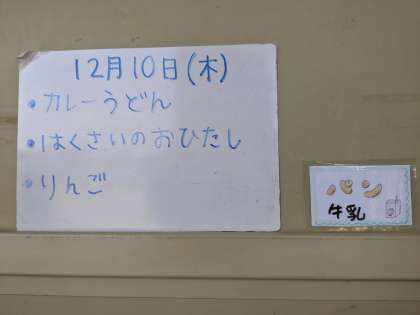 12月10日(木)
・カレーうどん
・はくさいのおひたし
・りんご
パン
牛乳